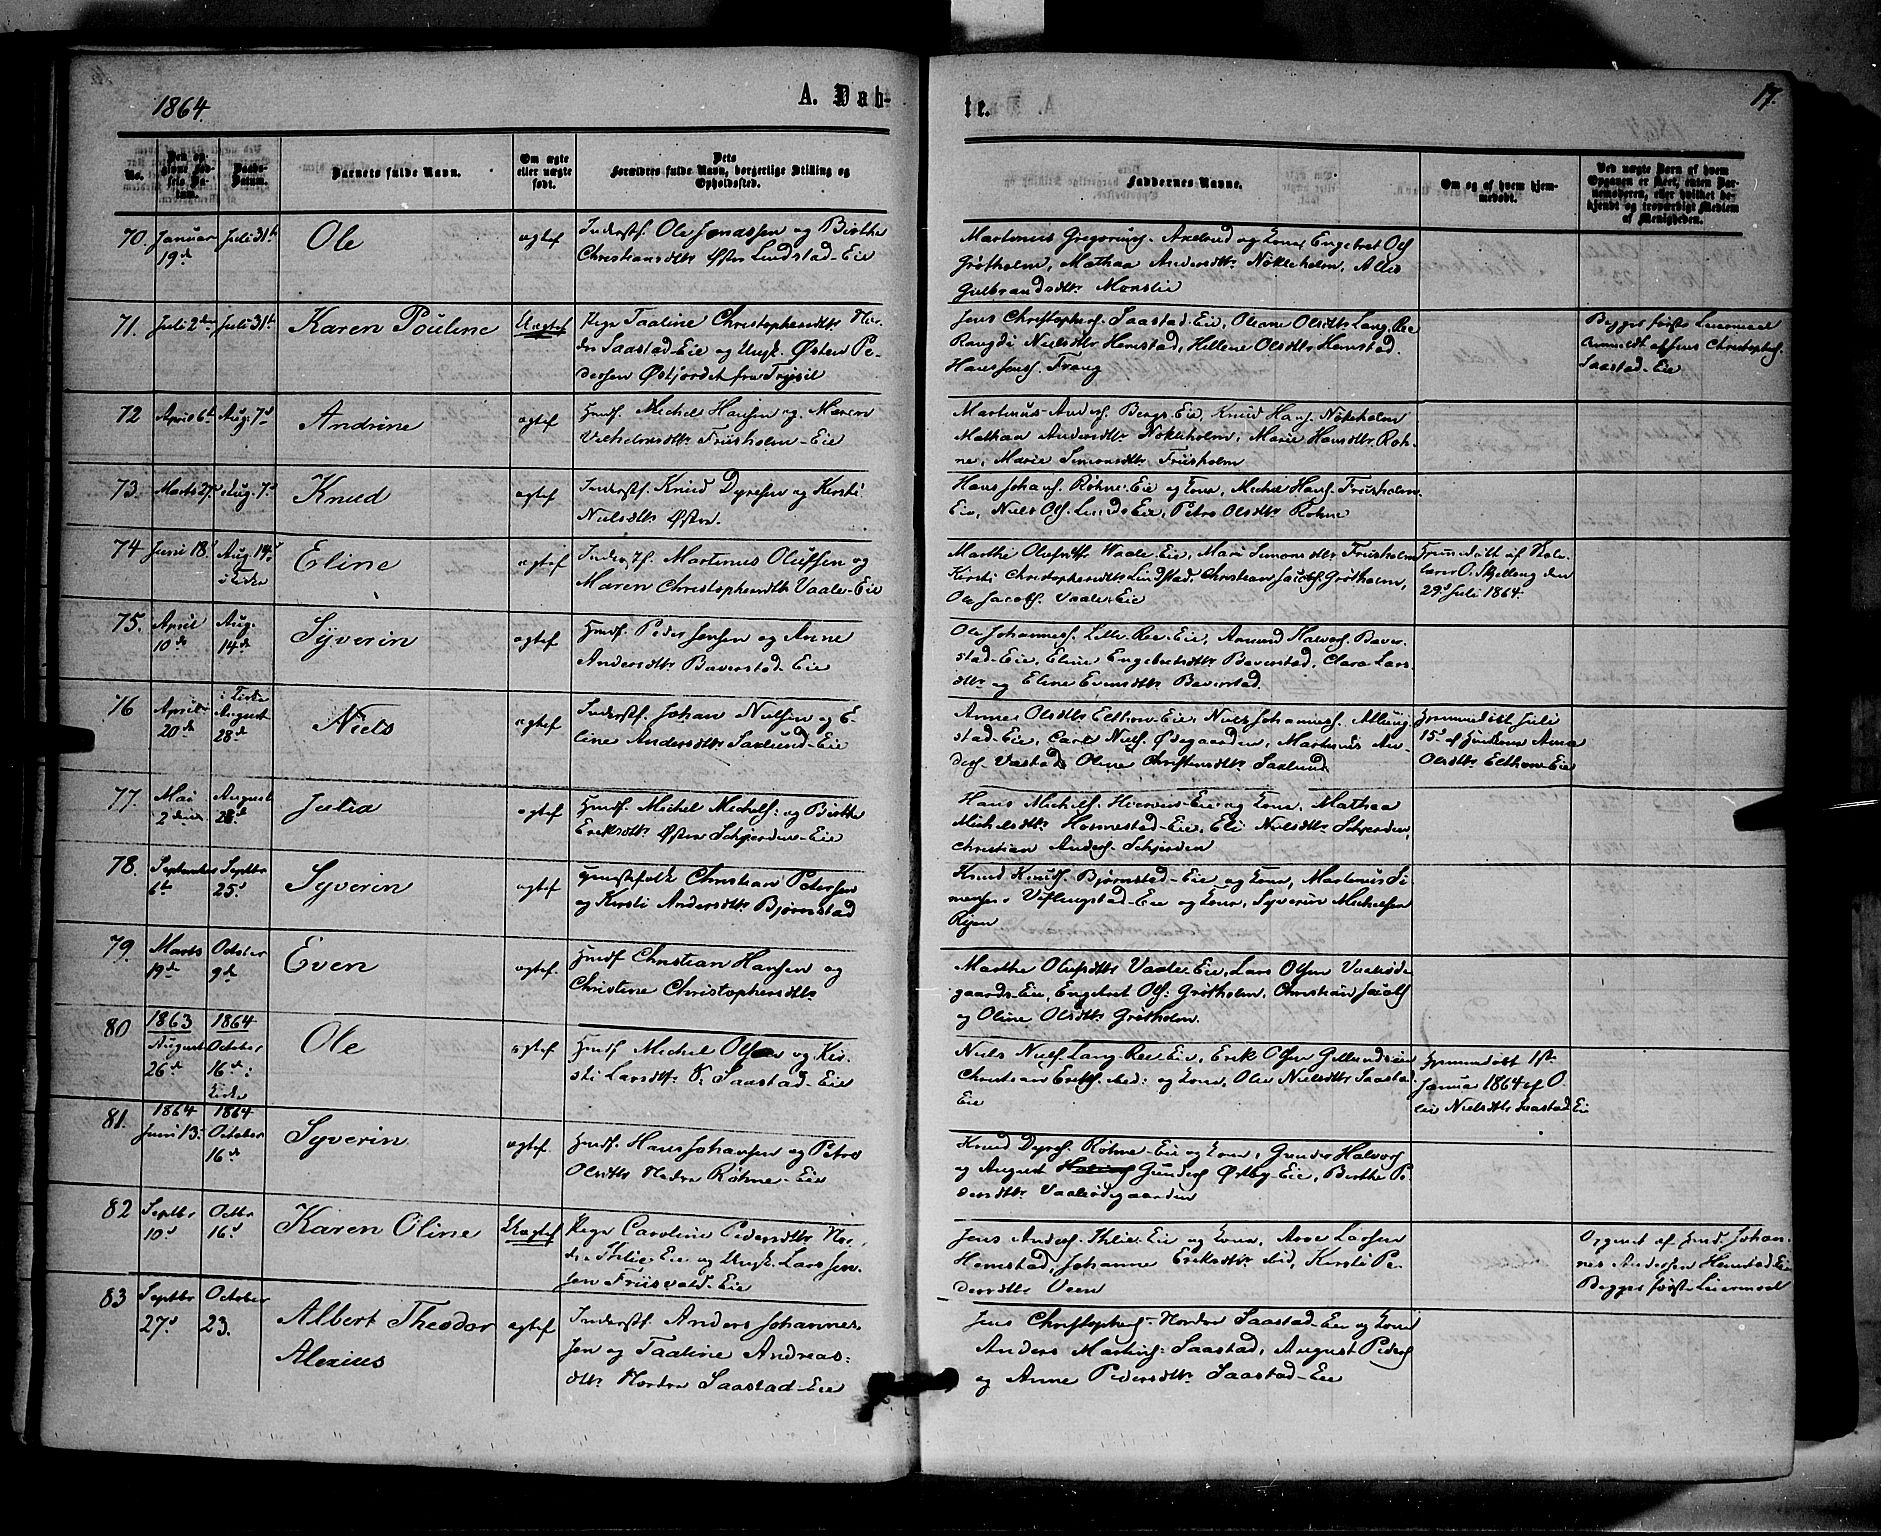 1864.
A. Dab-
te.
17.
No.
Den og
Daabs-
Datum.
Barnets fulde Navn.
Om ægte
eller uægte
født.
Dets
Forældres fulde Navn, borgerlige Stilling og
Opholdssted.
Faddernes Navne.
Om og af hvem hjem-
medøbt.
Ved uægte Barn af hvem
Opgaven er skeet, enten Bar-
nemoderen, eller hvilket be-
kjendt og troværdigt Medlem
af Menigheden.
70. Januar 19de Juli 31te Ole ægtef
Inderstf. Ole Jonassen og Birthe
Christiansdtr. Østre Lindstad-Eie
Martinus Gregoriuss. Axelrud og Kone, Engebret Ols.
Grøtholm, Mathea Andersdtr. Nökleholm,
Gulbrandsdtr. Monslie
71. Juli 2den Juli 31te Karen Pouline Uægtef
Pige Taaline Christophersdtr. Ne-
dre Saastad-Eie og Ungk. Østen Pe-
dersen Østjordet fra Trysil
Jens Christophers. Saastad-Eie, Oleane Olsdtr. Lang-Ree
Rangdi Nielsdtr. Hemstad, Hellene Olsdtr. Hemstad.
Hans Jens. Frang
Begges første Leiermaal
Anmeldt af Jens Christophers.
Saastad-Eie
72 April 6te Aug. 7de Andrine ægtef
Husmf. Michel Hansen og Maren
Vilhelmsdtr. Friisholm-Eie
Martinus Anders. Bergs-Eie, Knud Hans. Nökleholm
Mathea Andersdtr. Nökleholm, Marie Hansdtr. Roh-
ne, Marie Simonsdtr. Friisholm
73. Marts 27de Aug. 7de Knud ægtef
Inderstf. Knud Dyresen og Kirsti
Nielsdtr. Østre.
Hans Johans. Røhne-Eie og Kone, Michel Hans. Friisholm
Eie, Niels Ols. Linds Eie, Petra Olsdtr. Rohne
74 Juni 18. Aug. 14de i Kirken Eline ægtef
Inderstf. Martinus Olufsen og
Maren Christophersdtr. Vaale-Eie
Marthe Olufsdtr. Vaale-Eie, Mari Simonsdtr. Friisholm
Kirsti Christophersdtr. Lindstad, Christian Jacobs. Grøtholm,
Ole Jacobs. Vaale-Eie
Hjemmedøbt af Sko-
lærer O. Skjelleng den
29de Juli 1864.
75. April 10de Aug. 14de Syverin ægtef
Husmf. Peder Jensen og Anne
Andersdtr. Baverstad-Eie
Ole Johanness. Lille-Ree-Eie, Amund Halvors. Baver-
stad-Eie, Eline Engebretsdtr. Baverstad, Clara Lars-
dtr. og Eline Evensdtr. Baverstad.
76 April 20de i Kirken August 28de Niels ægtef
Inderstf. Johan Nielsen og E-
line Andersdtr. Saxlund-Eie
Anne Olsdtr. Elthon-Eie, Niels Johanness. Alling-
stad-Eie, Carl Niels. Ødegaarden, Martinus An-
ders. Vastad, Oline Christiansdtr. Saxlund
Hjemmedøbt Juli
15de af Enken Anne
Olsdtr. Elthon-Eie
77. Mai 2den August 28de Julia ægtef
Husmf. Michel Michels. og Birthe
Eriksdtr. Østre Schjerden-Eie
Hans Michels. Hvervus-Eie og Kone, Mathea
Michelsdtr. Hommestad-Eie, Eli Nielsdtr. Schjerden,
Christian Anders. Schjerden
78. September 6te Septbr 25de Syverin ægtef
Christian Petersen
og Kirsti Andersdtr. Bjørnstad
Knud Knuds. Bjørnstad-Eie og Kone, Martinus Si-
mensen Viflingstad-Eie og Kone, Syverin Michelsen
Risen
79. Marts 19de October 9de Even ægtef
Husmf. Christian Hansen og
Christine Christophersdtr.
Marthe Olufsdtr. Vaale-Eie, Lars Olsen Vaalsøde-
gaards-Eie, Engebret Ols. Grøtholm, Christian Jacobs.
og Oline Olsdtr. Grøtholm.
80 1863 August 26de 1864 October 16de i Kirke Ole ægtef
Husmf. Michel Olsen og Kir-
sti Larsdtr. N. Saastad-Eie
Niels Niels. Lang-Ree-Eie, Erik Olsen Gillundseie
Christian Eriks. ibid. og Kone, Olea Nielsdtr. Saastad-
Eie
Hjemmedøbt 1ste
Januar 1864 af O-
lea Nielsdtr. Saastad Eie
81. 1864 Juni 13. 1864 October 16de Syverin ægtef.
Husmf. Hans Johansen og Petra
Olsdtr. Nedre Röhne-Eie
Knud Dyres. Røhne-Eie og Kone, Gunder Halvors.
og August Gunders. Østby-Eie, Birthe Pe-
dersdtr. Vaalsødegaarden
82 Septbr 10de Octbr 16de Karen Oline Uægtef
Pige Caroline Pedersdtr. Ne-
dre Thlie-Eie og Ungk. Lars Jen-
sen Friisvold-Eie
Jens Anders. Thlie-Eie og Kone, Arve Larsen
Hemstad, Johanne Eriksdtr. ibid, Kirsti Pe-
dersdtr. Veen
Opgivet af Husmd. Johan-
nes Andersen Hemstad-Eie
Begges første Leiermaal
83 Septbr 27de October 23. Albert Theodor
Alexius ægtef
Inderstf. Anders Johannes-
sen og Taaline Andreas-
dtr. Nordre Saastad-Eie
Jens Christophers. Nordre Saastad-Eie og Kone
Anders Martins. Saastad, August Peders.
og Anne Pedersdtr. Saastad-Eie